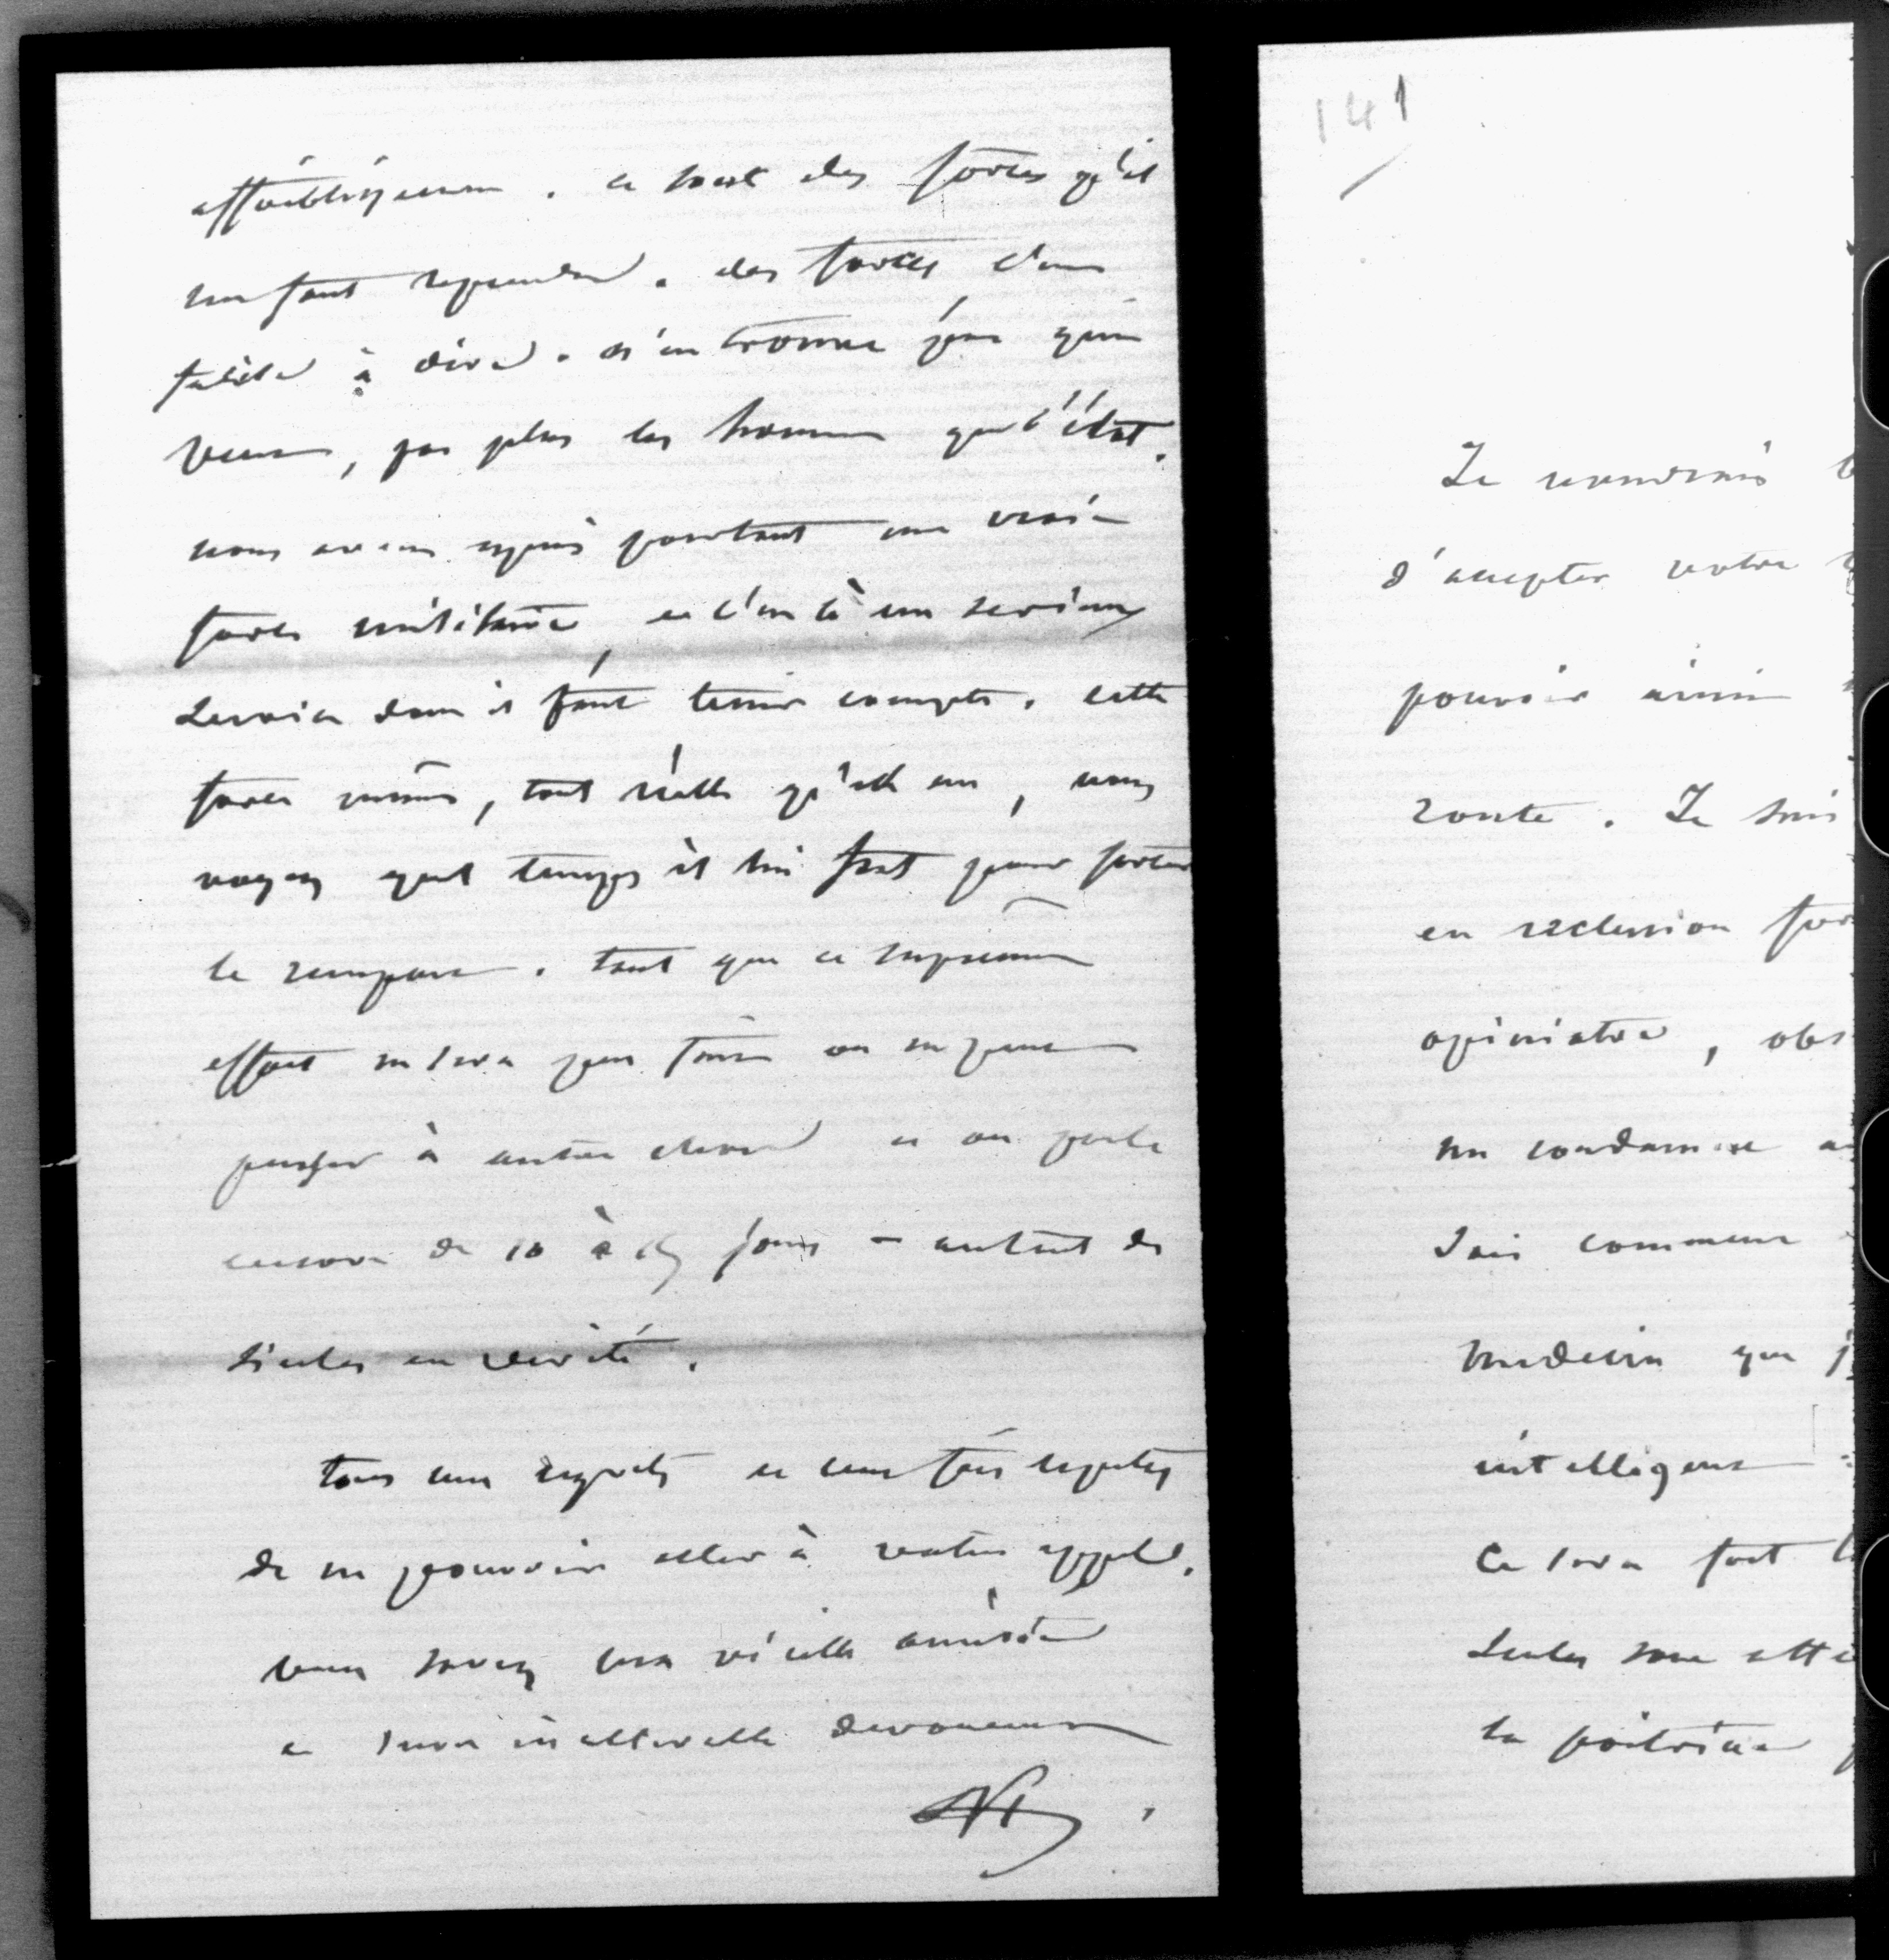 affaiblissement. ce sont des forces qu'il
me faut reprendre. des forces, c'est
facile à dire. n'en trouve pas qui
veut, pas plus les hommes que l'état.
nous avons appris pourtant une vraie
force militaire, et c'est là un sérieux
service dont il faut tenir compte. cette
force même, tout réelle qu'elle est, vous
voyez quel temps il lui faut pour forcer
le rempart. tant que ce suprême
effort ne sera pas fait on ne peut
penser à autre chose et on parle
encore de 10 à 15 jours – autant de
siècles en vérité.
tous mes regrets et cent fois répétés
de ne pouvoir aller à votre appel.
vous savez ma vieille amitié
et mon inaltérable dévouement
141
Je voudrais
d'accepter votre
pouvoir ainsi
route. Je suis
en réclusion
opiniatre, obs
me condamne
sais comment
médecin que
intelligent
Ce sera fort
seules sont
la poitrine